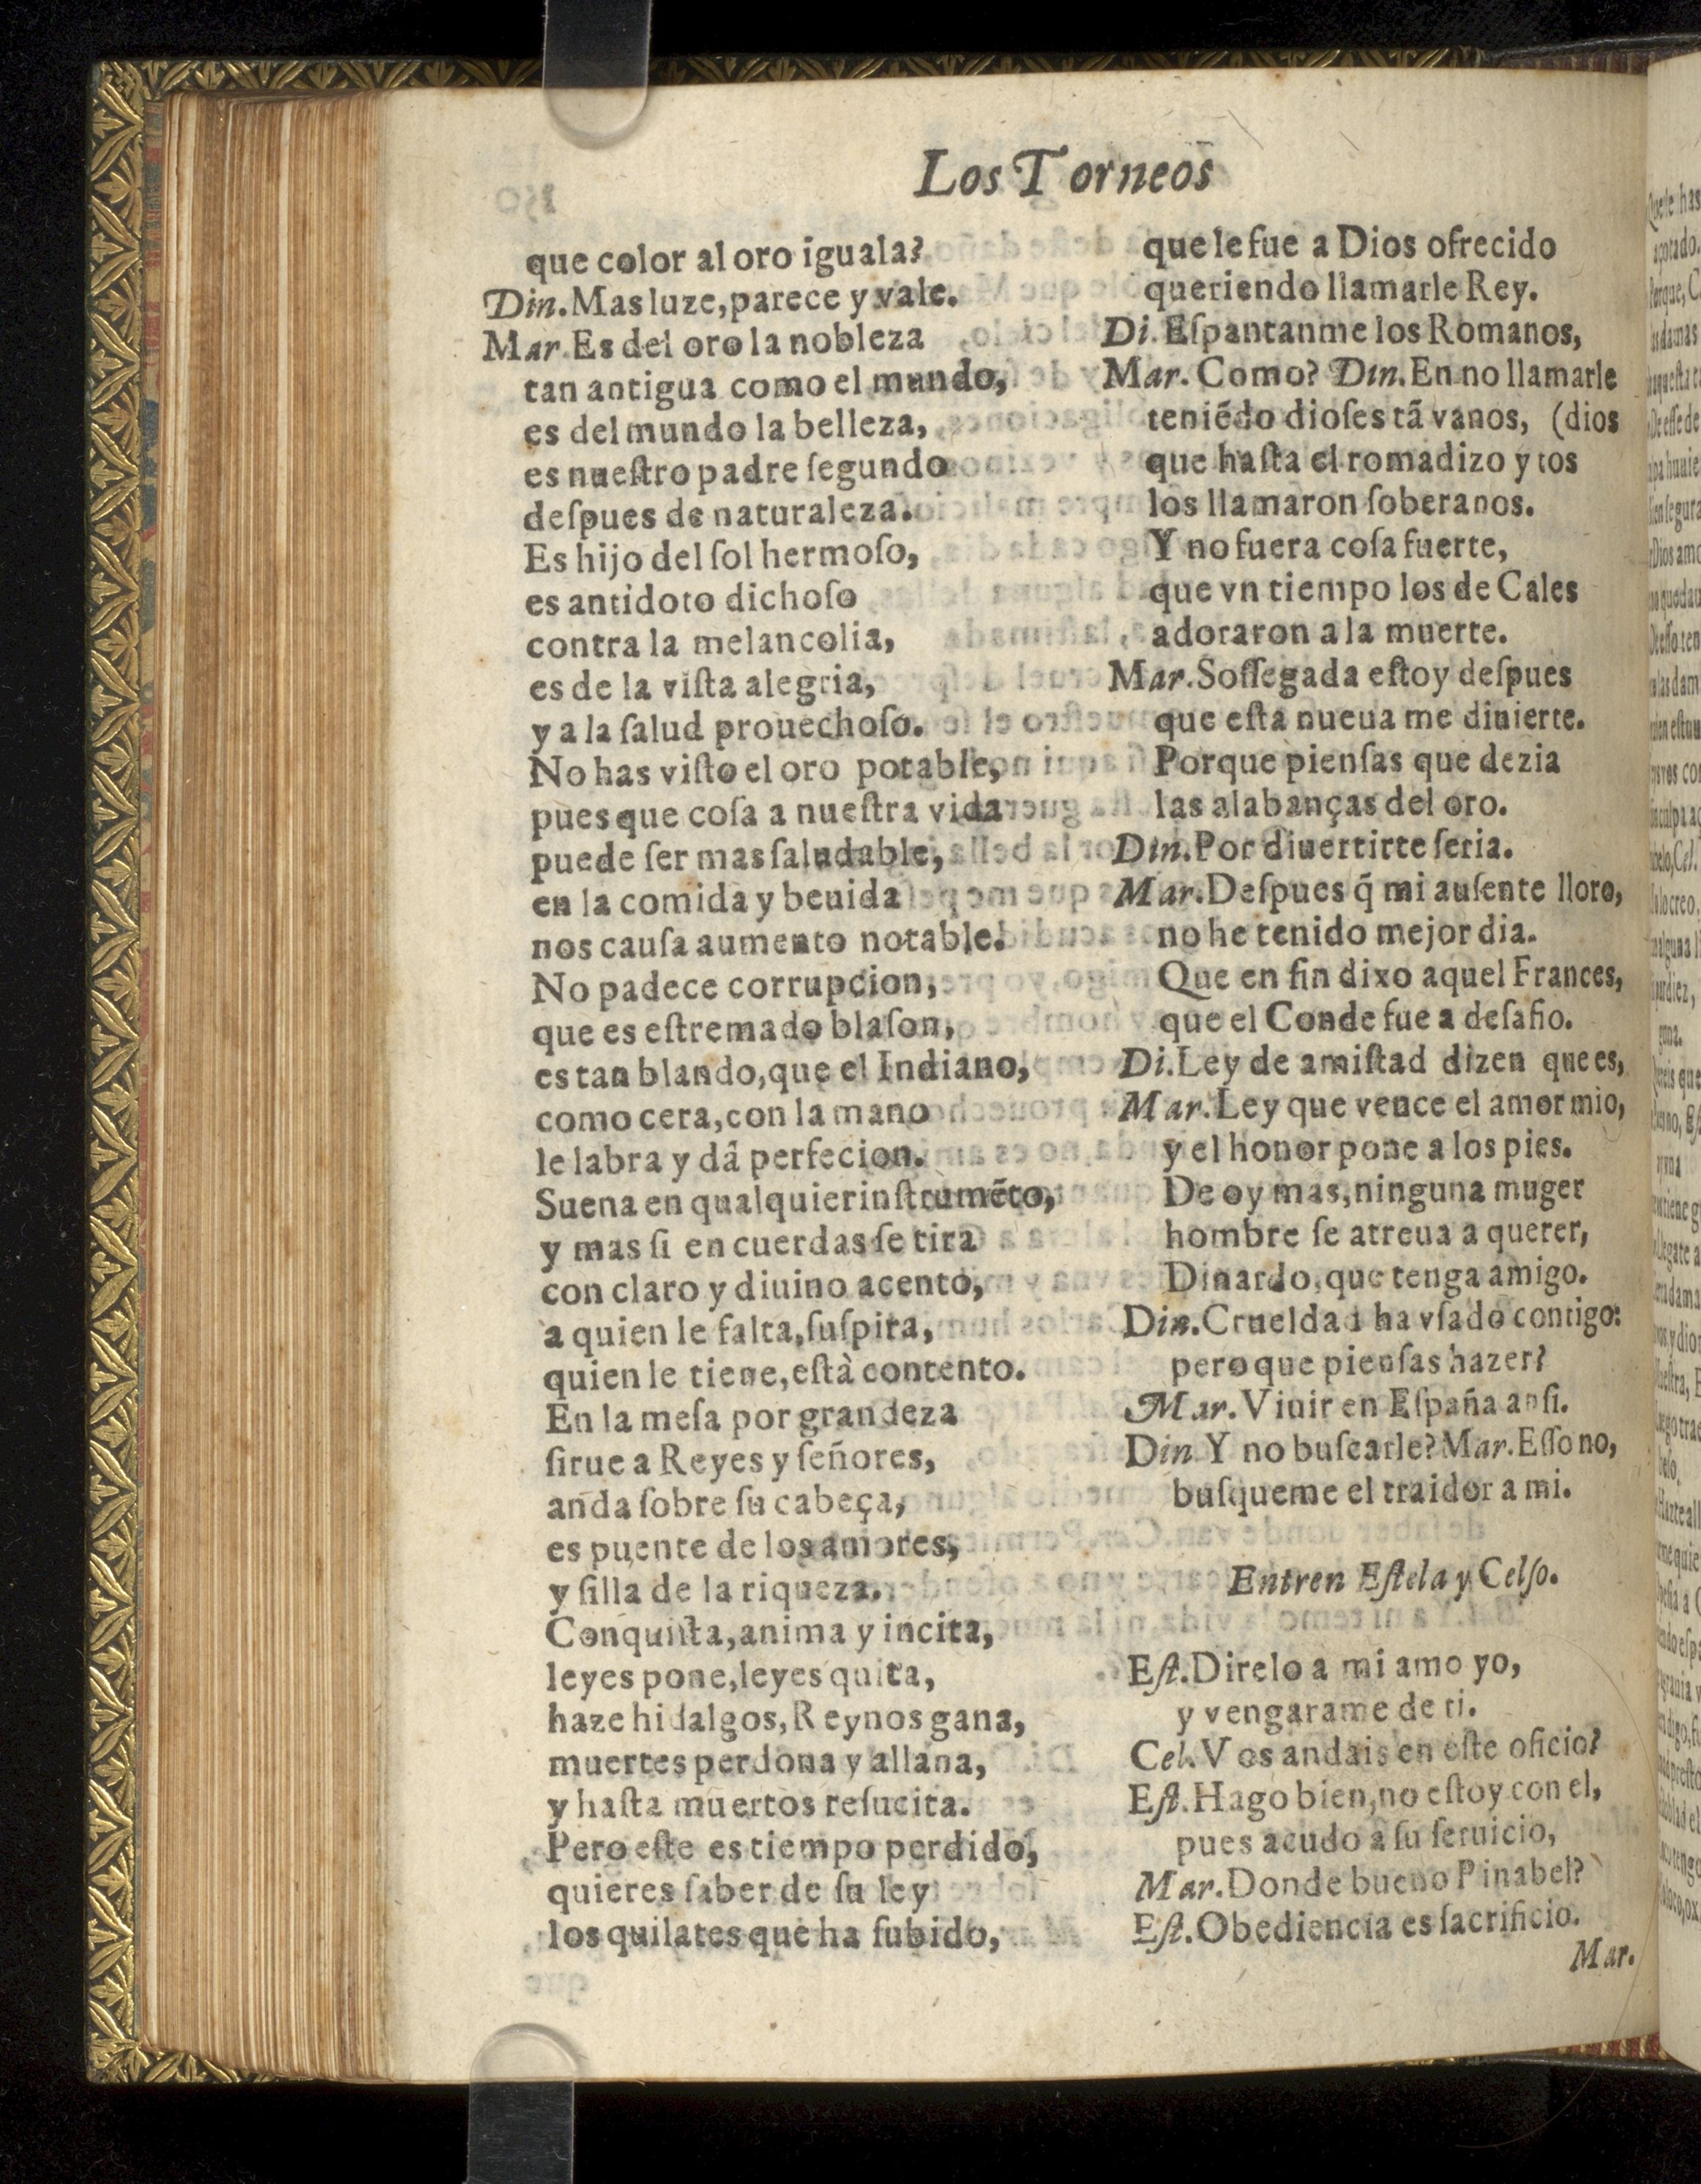 Los Torneos
que color al oro iguala?
Din. Mas luze, parece y vale.
Mar. Es del oro la nobleza
tan antigua como el mundo,
es del mundo la belleza,
es nueſtro padre ſegundo
deſpues de naturaleza.
Es hijo del ſol hermoſo,
es antidoto dichoſo
contra la melancolia,
es de la viſta alegria,
y a la ſalud prouechoſo.
No has viſto el oro potable,
pues que coſa a nueſtra vida
puede ſer mas ſaludable,
en la comida y beuida
nos cauſa aumento notable.
No padece corrupcion,
que es eſtremado blaſon,
es tan blando, que el Indiano,
como cera, con la mano
le labra y dâ perfecion.
Suena en qualquier inſtrumẽto,
y mas ſi en cuerdas ſe tira
con claro y diuino acento,
a quien le falta, ſuſpira,
quien le tiene, eſtà contento.
En la meſa por grandeza
ſirue a Reyes y ſeñores,
anda ſobre ſu cabeça,
es puente de los amores,
y ſilla de la riqueza.
Conquiſta, anima y incita,
leyes pone, leyes quita,
haze hidalgos, Reynos gana,
muertes perdona y allana,
y haſta muertos reſucita.
Pero eſte es tiempo perdido,
quieres ſaber de ſu ley
los quilates que ha ſubido,
que le fue a Dios ofrecido
queriendo llamarle Rey.
Di. Eſpantanme los Romanos,
Mar. Como? Din. En no llamarle
teniẽdo dioſes tã vanos, (dios
que haſta el romadizo y tos
los llamaron ſoberanos.
Y no fuera coſa fuerte,
que vn tiempo los de Cales
adoraron a la muerte.
Mar. Soſſegada eſtoy deſpues
que eſta nueua me diuierte.
Porque pienſas que dezia
las alabanças del oro.
Din. Por diuertirte ſeria.
Mar. Deſpues q̃ mi auſente lloro,
no he tenido mejor dia.
Que en fin dixo aquel Frances,
que el Conde fue a deſafio.
Di. Ley de amiſtad dizen que es,
Mar. Ley que vence el amor mio,
y el honor pone a los pies.
De oy mas, ninguna muger
hombre ſe atreua a querer,
Dinardo, que tenga amigo.
Din. Crueldad ha vſado contigo:
pero que pienſas hazer?
Mar. Viuir en Eſpaña anſi.
Din Y no buſcarle? Mar. Eſſo no,
buſqueme el traidor a mi.
Entren Eſtela y Celſo.
Eſt. Direlo a mi amo yo,
y vengarame de ti.
Cel. Vos andais en eſte oficio?
Eſt. Hago bien, no eſtoy con el,
pues acudo a ſu ſeruicio,
Mar. Donde bueno Pinabel?
Eſt. Obediencia es ſacrificio.
Mar.